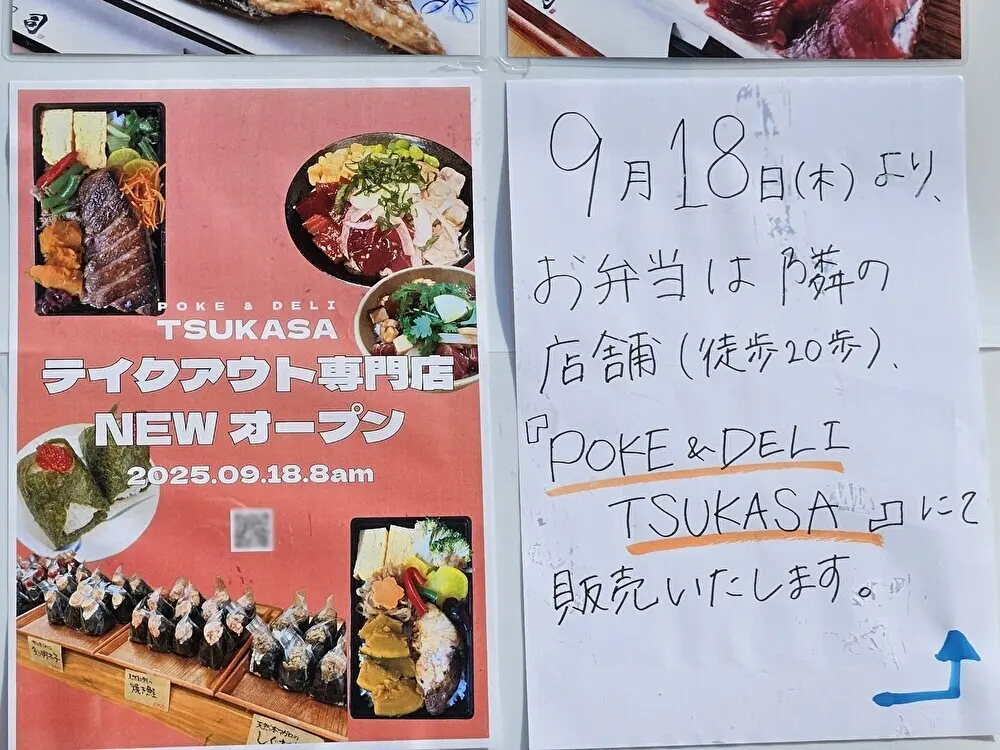 司
POKE & DELI
TSUKASA
テイクアウト専門店
NEW オープン
2025.09.18.8am
焼き鮭
9月18日(木)より、
お弁当は隣の
店舗(徒歩20歩)、
『POKE & DELI
TSUKASA』にて
販売いたします。